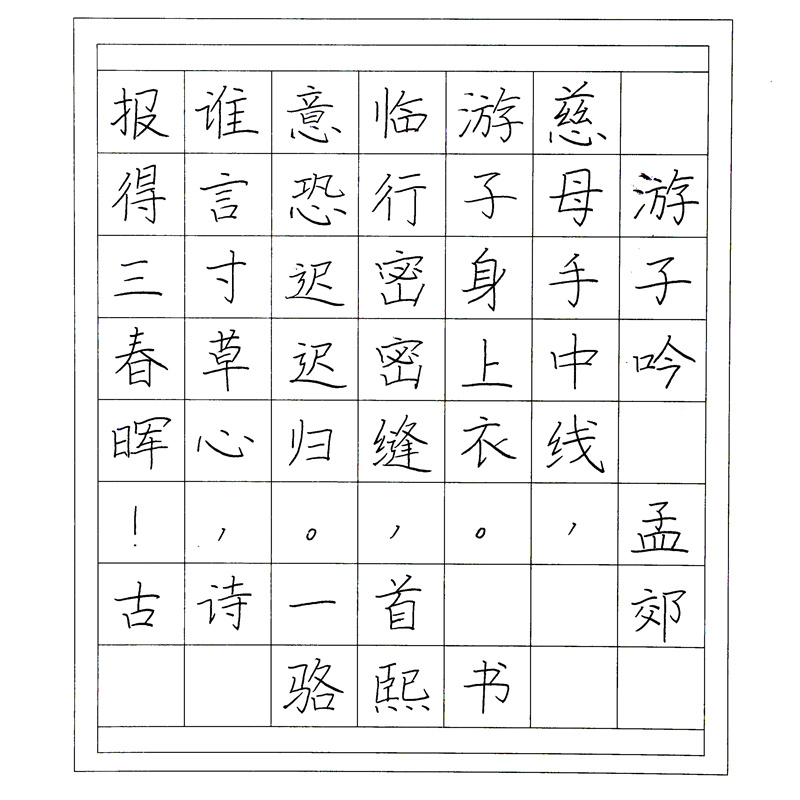 游子吟 孟郊
慈母手中线，
游子身上衣。
临行密密缝，
意恐迟迟归。
谁言寸草心，
报得三春晖！
古诗一首
骆熙书